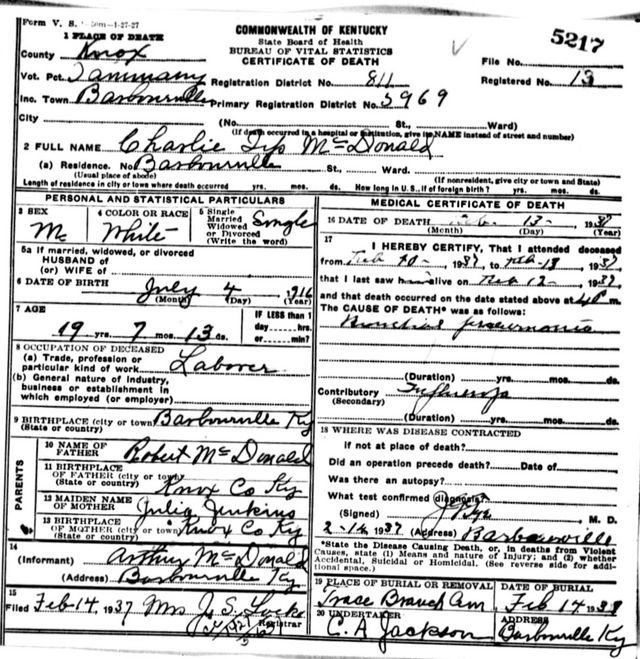 Form V. S. 1-27-27
COMMONWEALTH OF KENTUCKY
State Board of Health
BUREAU OF VITAL STATISTICS
CERTIFICATE OF DEATH
5217
1 PLACE OF DEATH
County Knox
File No.
Vot. Pct. Tammany Registration District No. 811 Registered No. 13
Inc. Town Barbourville Primary Registration District No. 5969
City (No. St., Ward)
(If death occurred in a hospital or institution, give its NAME instead of street and number)
2 FULL NAME Charlie McDonald
(a) Residence. No Barbourville St., Ward.
(Usual place of abode) (If nonresident, give city or town and State)
Length of residence in city or town where death occurred yrs. mos. ds. How long in U.S., if of foreign birth? yrs. mos. ds.
PERSONAL AND STATISTICAL PARTICULARS
3 SEX M
4 COLOR OR RACE White
5 Single Married Widowed or Divorced (Write the word) Single
5a If married, widowed, or divorced
HUSBAND of
(or) WIFE of
6 DATE OF BIRTH July 4, 1916
(Month) (Day) (Year)
7 AGE
19 yrs. 7 mos. 13 ds.
IF LESS than 1
day hrs.
or min?
8 OCCUPATION OF DECEASED
(a) Trade, profession or
particular kind of work Laborer
(b) General nature of industry,
business or establishment in
which employed (or employer)
9 BIRTHPLACE (city or town) Barbourville Ky
(State or country)
PARENTS
10 NAME OF FATHER Robert McDonald
11 BIRTHPLACE OF FATHER (city or town) (State or country) Knox Co Ky
12 MAIDEN NAME OF MOTHER Julia Jenkins
13 BIRTHPLACE OF MOTHER (city or town) (State or country) Knox Co Ky
14
(Informant) Arthur McDonald
(Address) Barbourville Ky
15
Filed Feb 14, 1937 Mrs J. S. Locke
Registrar
MEDICAL CERTIFICATE OF DEATH
16 DATE OF DEATH Feb. 13 - 1937
(Month) (Day) (Year)
17
I HEREBY CERTIFY, That I attended deceased
from Feb 10 - 1937, to Feb - 13, 1937,
that I last saw him alive on Feb 12 - 1937,
and that death occurred on the date stated above at m.
The CAUSE OF DEATH* was as follows:
Bronchial pneumonia
(Duration) yrs. mos. ds.
Contributory Influenza
(Secondary)
(Duration) yrs. mos. ds.
18 WHERE WAS DISEASE CONTRACTED
If not at place of death?
Did an operation precede death? Date of
Was there an autopsy?
What test confirmed diagnosis?
(Signed) M. D.
2-14, 1937 (Address) Barbourville
*State the Disease Causing Death, or, in deaths from Violent
Causes, state (1) Means and nature of Injury; and (2) whether
Accidental, Suicidal or Homicidal. (See reverse side for addi-
tional space.)
19 PLACE OF BURIAL OR REMOVAL DATE OF BURIAL
Trace Branch Cem Feb 14 193
20 UNDERTAKER ADDRESS
C. A Jackson Barbourville Ky